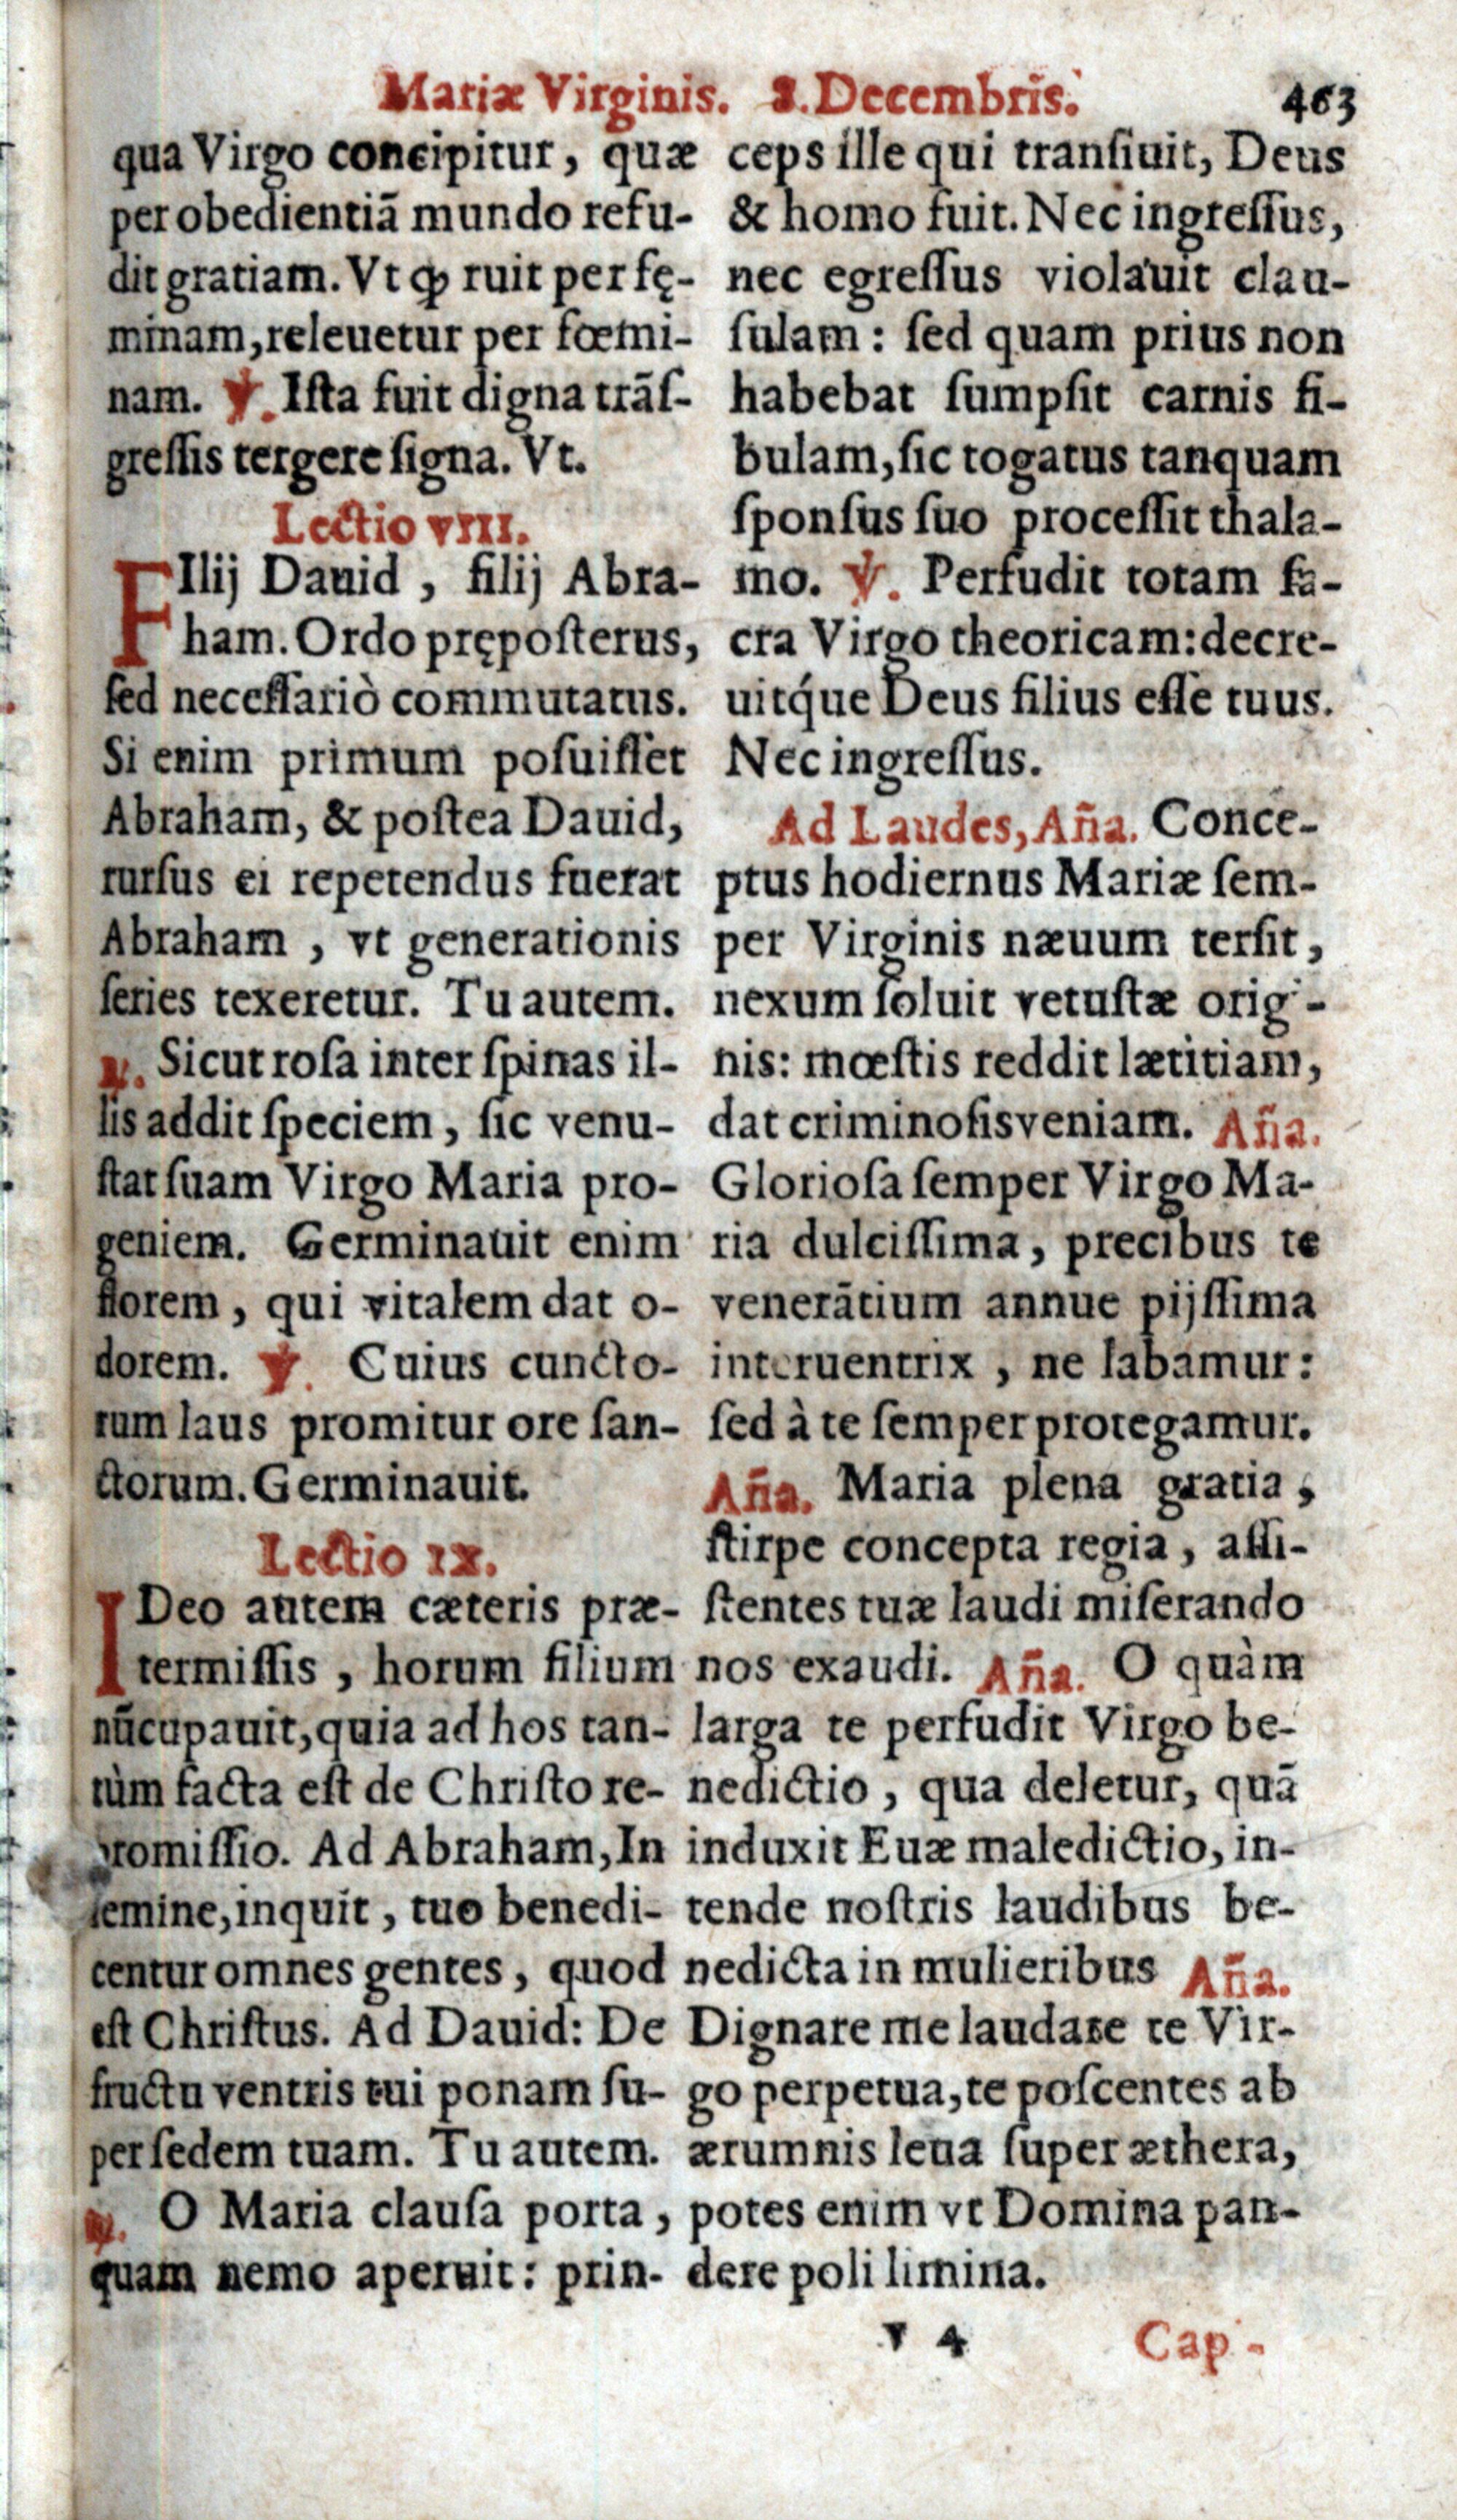 Mariæ Virginis. 8. Decembris. 463
qua Virgo concipitur, quæ
per obedientiã mundo refu-
dit gratiam. Vt ꝙ ruit per fę-
minam, releuetur per fœmi-
nam. ℣. Iſta fuit digna trãſ-
greſſis tergere ſigna. Vt.
Lectio VIII.
FIlij Dauid, filij Abra-
ham. Ordo prępoſterus,
ſed neceſſariò commutatus.
Si enim primum poſuiſſet
Abraham, & poſtea Dauid,
rurſus ei repetendus fuerat
Abraham, vt generationis
ſeries texeretur. Tu autem.
℟. Sicut roſa inter ſpinas il-
lis addit ſpeciem, ſic venu-
ſtat ſuam Virgo Maria pro-
geniem. Germinauit enim
florem, qui vitalem dat o-
dorem. ℣. Cuius cuncto-
rum laus promitur ore ſan-
ctorum. Germinauit.
Lectio IX.
IDeo autem cæteris præ-
termiſſis, horum filium
nũcupauit, quia ad hos tan-
tùm facta eſt de Chriſto re-
promiſſio. Ad Abraham, In
ſemine, inquit, tuo benedi-
centur omnes gentes, quod
eſt Chriſtus. Ad Dauid: De
fructu ventris tui ponam ſu-
per ſedem tuam. Tu autem.
℟. O Maria clauſa porta,
quam nemo aperuit: prin-
ceps ille qui tranſiuit, Deus
& homo fuit. Nec ingreſſus,
nec egreſſus violauit clau-
ſulam: ſed quam prius non
habebat ſumpſit carnis fi-
bulam, ſic togatus tanquam
ſponſus ſuo proceſſit thala-
mo. ℣. Perfudit totam ſa-
cra Virgo theoricam: decre-
uitq́ue Deus filius eſſe tuus.
Nec ingreſſus.
Ad Laudes, Aña. Conce-
ptus hodiernus Mariæ ſem-
per Virginis næuum terſit,
nexum ſoluit vetuſtæ origi-
nis: mœſtis reddit lætitiam,
dat criminoſis veniam. Aña.
Glorioſa ſemper Virgo Ma-
ria dulciſſima, precibus te
venerãtium annue pijſſima
interuentrix, ne labamur:
ſed à te ſemper protegamur.
Aña. Maria plena gratia,
ſtirpe concepta regia, aſſi-
ſtentes tuæ laudi miſerando
nos exaudi. Aña. O quàm
larga te perfudit Virgo be-
nedictio, qua deletur, quã
induxit Euæ maledictio, in-
tende noſtris laudibus be-
nedicta in mulieribus Aña.
Dignare me laudare te Vir-
go perpetua, te poſcentes ab
ærumnis leua ſuper æthera,
potes enim vt Domina pan-
dere poli limina.
V 4 Cap-